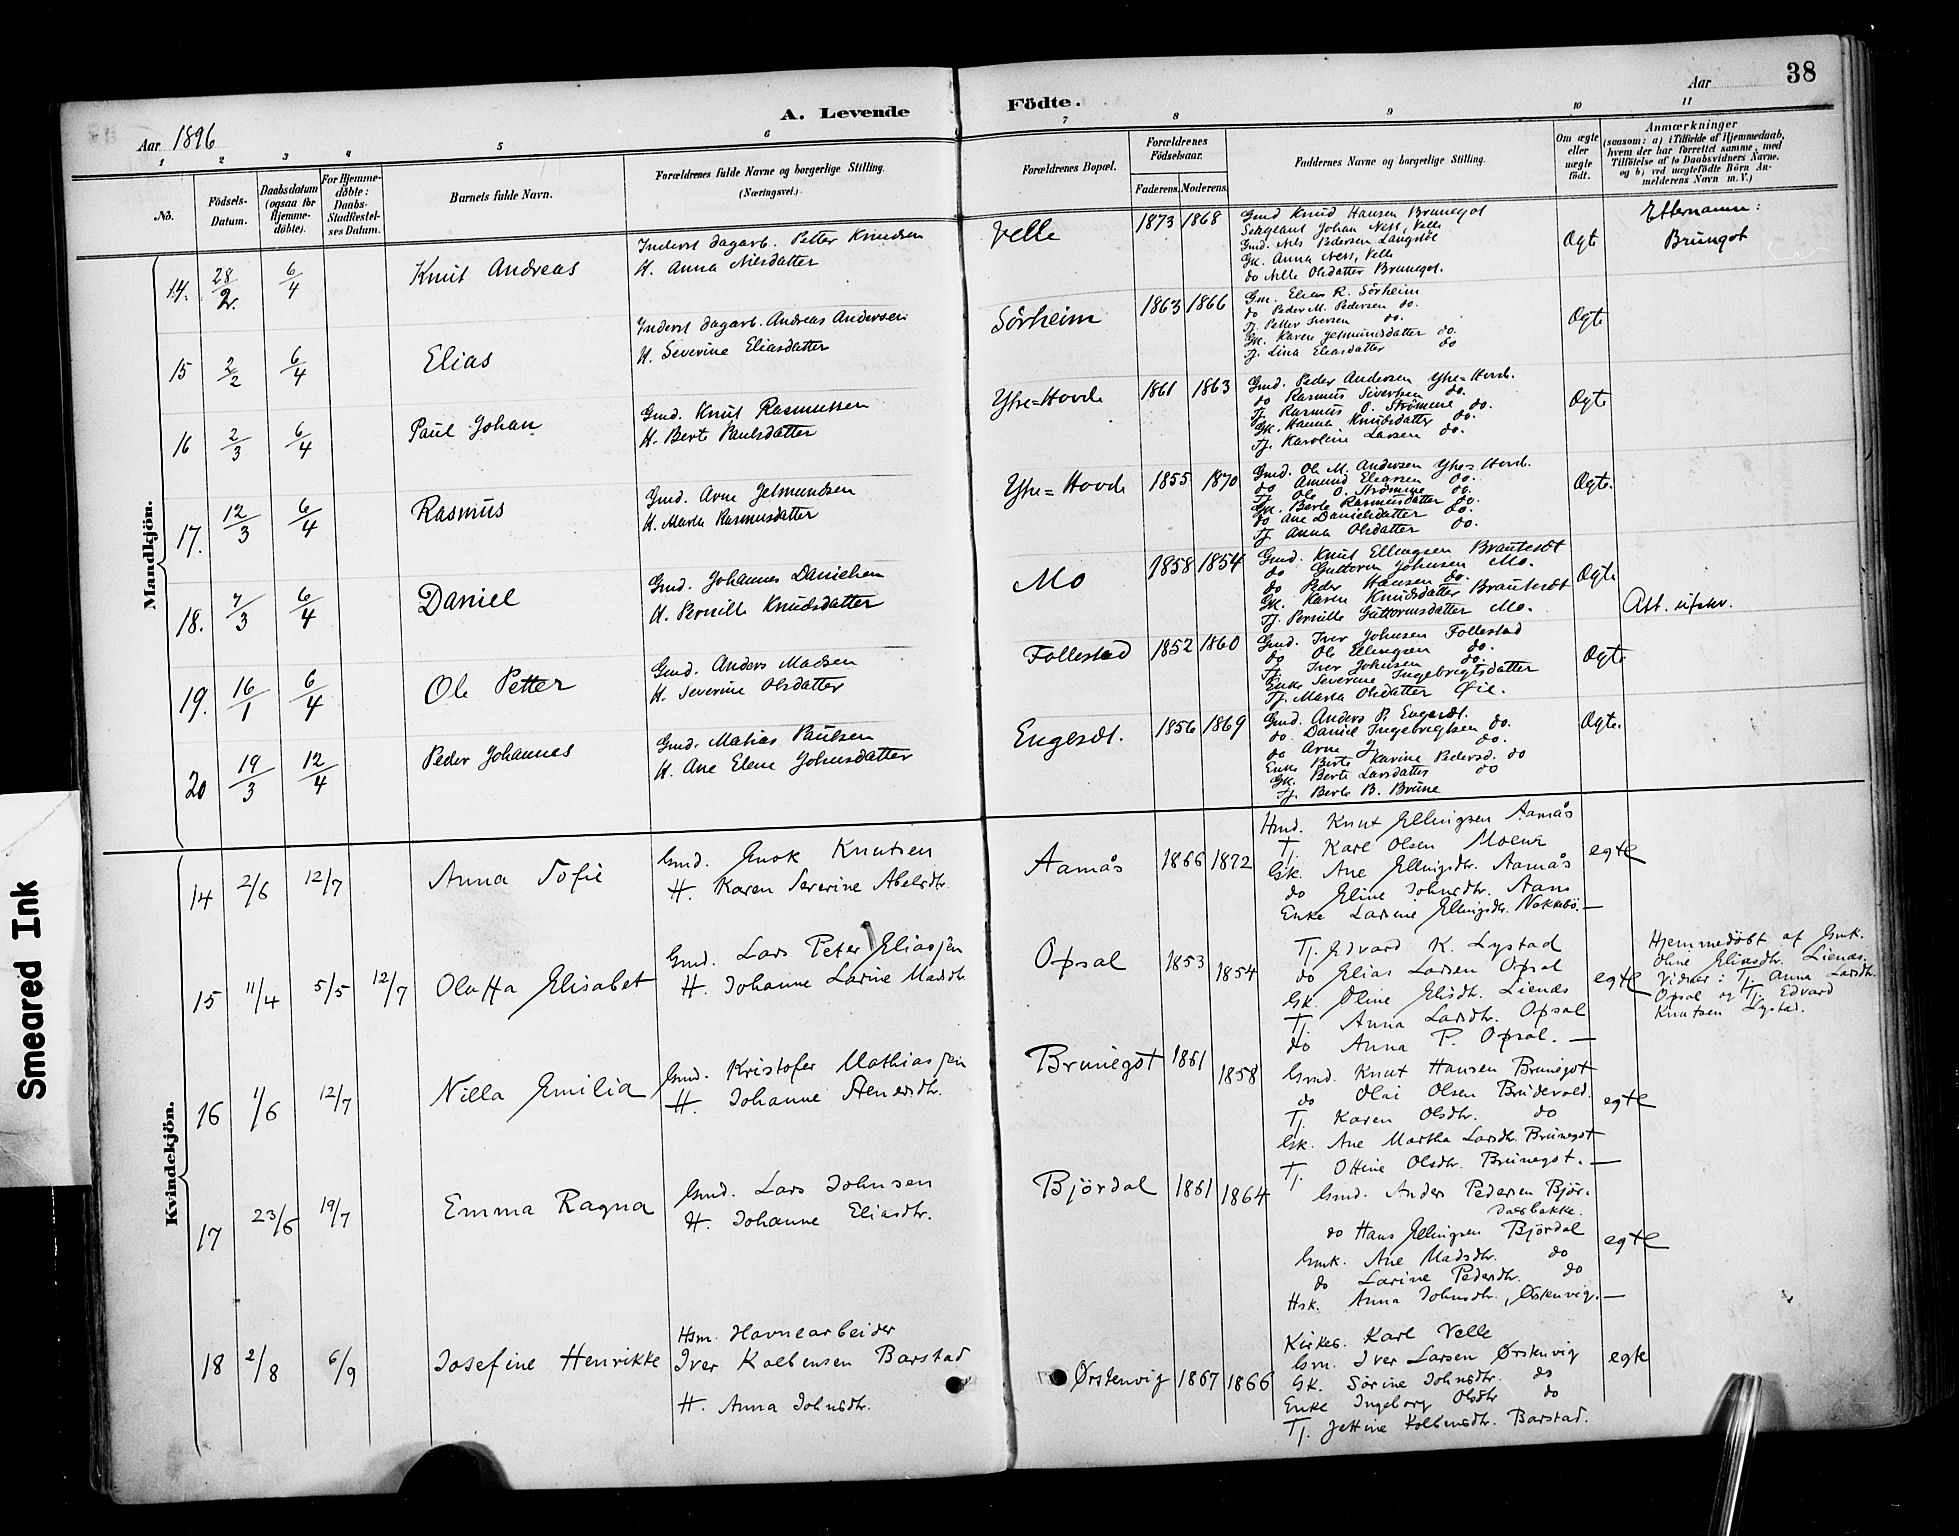 38
A. Levende
Födte.
Aar
Aar 1896
1 2 3 4 5 6 7 8 9 10 11
No.
Födsels-Datum.
Daabsdatum (ogsaa for Hjemme-döbte).
For Hjemme-döbte: Daabs-Stadfæstel-ses Datum.
Barnets fulde Navn.
Forældrenes fulde Navne og borgerlige Stilling.
(Næringsvei.)
Forældrenes Bopæl.
Forældrenes Födselsaar.
Faderens. Moderens.
Faddernes Navne og borgerlige Stilling.
Om ægte eller uægte födt.
Anmærkninger
(saasom: a) i Tilfælde af Hjemmedaab,
hvem der har forrettet samme, med
Tilföielse af to Daabsvidners Navne.
og b) ved uægtefödte Börn An-
melderens Navn m. V.)
Mandkjön.
14. 28/2. 6/4 Knut Andreas
Inderst dagarb. Petter Knudsen
H. Anna Nilsdatter
Velle 1873 1868
Gmd Knud Hansen Brunegot
Sergeant Johan Ness, Velle
Gmd. Nils Pedersen Langstöl
Gk. Anna Ness, Velle
do Nille Olsdatter Brunegot.
Ogte
Efternamn:
Brungot
15 2/2 6/4 Elias
Inderst dagarb. Andreas Andersen
H. Severine Eliasdatter
Sörheim 1863 1866
Gm. Elias R. Sörheim
do Peder M. Pedersen do.
Tj. Petter Iversen do.
Gk. Karen Jetmundsdatter do.
Tj. Lina Eliasdatter do
Ogte
16 2/3 6/4 Paul Johan
Gmd. Knut Rasmussen
H. Berte Paulsdatter
Ytre=Hovde 1861 1863
Gmd. Peder Andersen Ytre=Hovd.
do Rasmus Sivertsen do.
Tj. Rasmus O. Strömme do.
Gk. Hanna Knudsdatter do.
Tj. Karoline Larsen do.
Ogte
17. 12/3 6/4 Rasmus
Gmd. Arne Jetmundsen
H. Marta Rasmusdatter
Ytre=Hovde 1855 1870
Gmd. Ole M. Andersen Ytre=Hovd.
do Amund Eliassen do.
Tj. Ole O. Strömme do.
Gk. Berte Rasmusdatter do.
do Ane Danielsdatter do.
Tj. Anna Olsdatter do.
Ogte.
18. 7/3 6/4 Daniel
Gmd. Johannes Danielsen
H. Pernille Knudsdatter
Mo 1858 1854
Gmd. Knut Ellingsen Brautesdt
do Guttorm Johnsen Mo.
do Peder Hansen do.
Gk. Karen Knudsdatter Brautesdt
Tj. Pernille Guttormsdatter Mo.
Ogte
Att. utskr.
19. 16/1 6/4 Ole Petter
Gmd. Anders Madsen
H. Severine Olsdatter
Follestad 1852 1860
Gmd. Iver Johnsen Follestad
do Ole Ellingsen do.
Tj. Iver Johnsen do.
Enke Severine Ingebrigtsdatter
Tj. Marta Olsdatter Öie.
Ogte
20 19/3 12/4 Peder Johannes
Gmd. Matias Paulsen
H. Ane Elene Johnsdatter
Engesdt. 1856 1869
Gmd. Anders P. Engesdt.
do. Daniel Ingebrigtsen do.
do Arne J. do.
Enke Berte Karine Pedersd. do
Gk. Berte Larsdatter do
Tj. Berte B. Brune
Ogte.
Kvindekjön.
14 2/6 12/7 Anna Sofie
Gmd. Enok Knutsen
H. Karen Severine Abelsdtr.
Aamås 1866 1872
Hmd. Knut Ellingsen Aamås
Tj. Karl Olsen Moene
Gk. Ane Ellingsdtr. Aamås
do Eline Johnsdtr. Aam
Enke Larsine Ellingsdtr. Nakkebö.—
egte
15 11/4 5/5 12/7 Oluffa Elisabet
Gmd. Lars Peter Eliassen
H. Johanne Larine Madsdtr.
Opsal 1853 1854
Tj. Edvard K. Lystad
do Elias Larsen Opsal
Gk. Oline Elisdtr. Lienæs
Tj. Anna Larsdtr. Opsal
do Anna P. Opsal.—
egte
Hjemmedöbt af Gmk.
Oline Eliasdtr. Lienæs.
Vidner: Tj. Anna Larsdtr.
Opsal og Tj. Edvard
Knutsen Lystad.
16 1/6 12/7 Nilla Emilia
Gmd. Kristofer Mathiassen
H. Johanne Stenersdtr.
Brunegot 1861 1858
Gmd. Knut Hansen Brunegot
do Olai Olsen Brudevold.
Tj. Karen Olsdtr. do
Gk. Ane Martha Larsdtr. Brunegot
Tj. Ottine Olsdtr. Brunegot.—
egte
17 23/6 19/7 Emma Ragna
Gmd. Lars Johnsen
H. Johanne Eliasdtr.
Björdal 1861 1864
Gmd. Anders Pedersen Björ-
dalsbakke.
do Hans Ellingsen Björdal
Gmk. Ane Madsdtr. do
do Larine Pedersdtr. do
Hsk. Anna Johnsdtr., Ørstenvig.—
egte
18 2/8 6/9 Josefine Henrikke
Hsm. Havnearbeider
Iver Kolbensen Barstad
H. Anna Johnsdtr.
Ørstenvig 1867 1866
Kirkes. Karl Velle
Gm. Iver Larsen Ørstenvig
Gk. Sörine Johnsdtr. do
Enke Ingeborg Olsdtr do
Tj. Jettine Kolbensdtr. Barstad.
egte
Smeared Ink